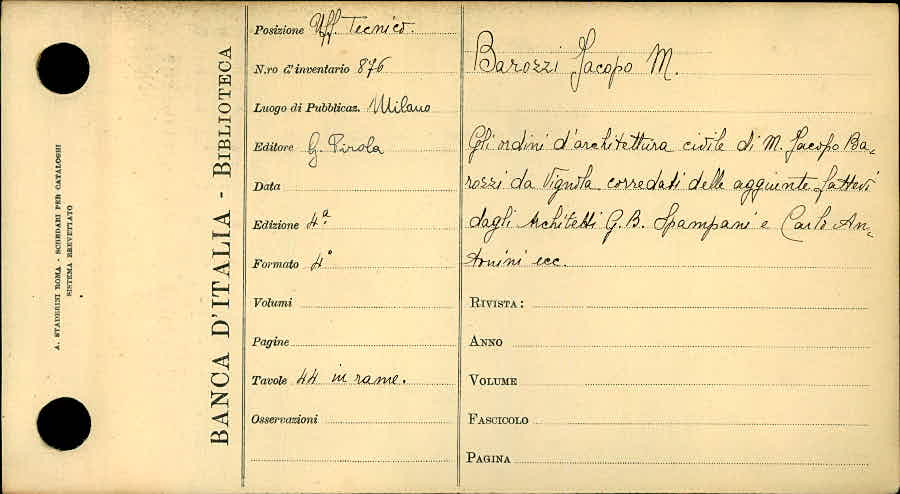 A. STADERINI ROMA - SCHEDARI PER CATALOGHI
SISTEMA BREVETTATO
BANCA D'ITALIA - BIBLIOTECA
Posizione Uff. Tecnico.
N.ro d'inventario 876
Luogo di Pubblicaz. Milano
Editore G. Pirola
Data
Edizione 4ª
Formato 4°
Volumi
Pagine
Tavole 44 in rame.
Osservazioni
Barozzi Jacopo M.
Gli ordini d'architettura civile di M. Jacopo Ba-
rozzi da Vignola corredati delle aggiunte fattevi
dagli Architetti G. B. Spampani e Carlo An-
tonini ecc.
RIVISTA:
ANNO
VOLUME
FASCICOLO
PAGINA